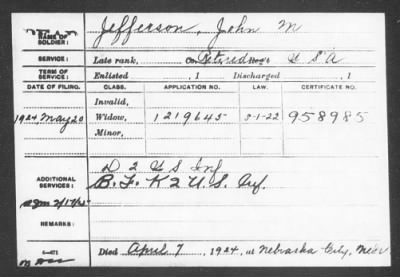 NAME OF SOLDIER: Jefferson, John M
SERVICE: Late rank, Co. Retired Reg't U S A
TERM OF SERVICE: Enlisted , 1 Discharged , 1
DATE OF FILING. CLASS. APPLICATION NO. LAW. CERTIFICATE NO.
Invalid,
1924 May 20 Widow, 1219645 5-1-22 958985
Minor,
ADDITIONAL SERVICES: D 2 U S Inf
B. F. K 2 U. S. Inf.
REMARKS:
Died April 7, 1924, at Nebraska City, Nebr